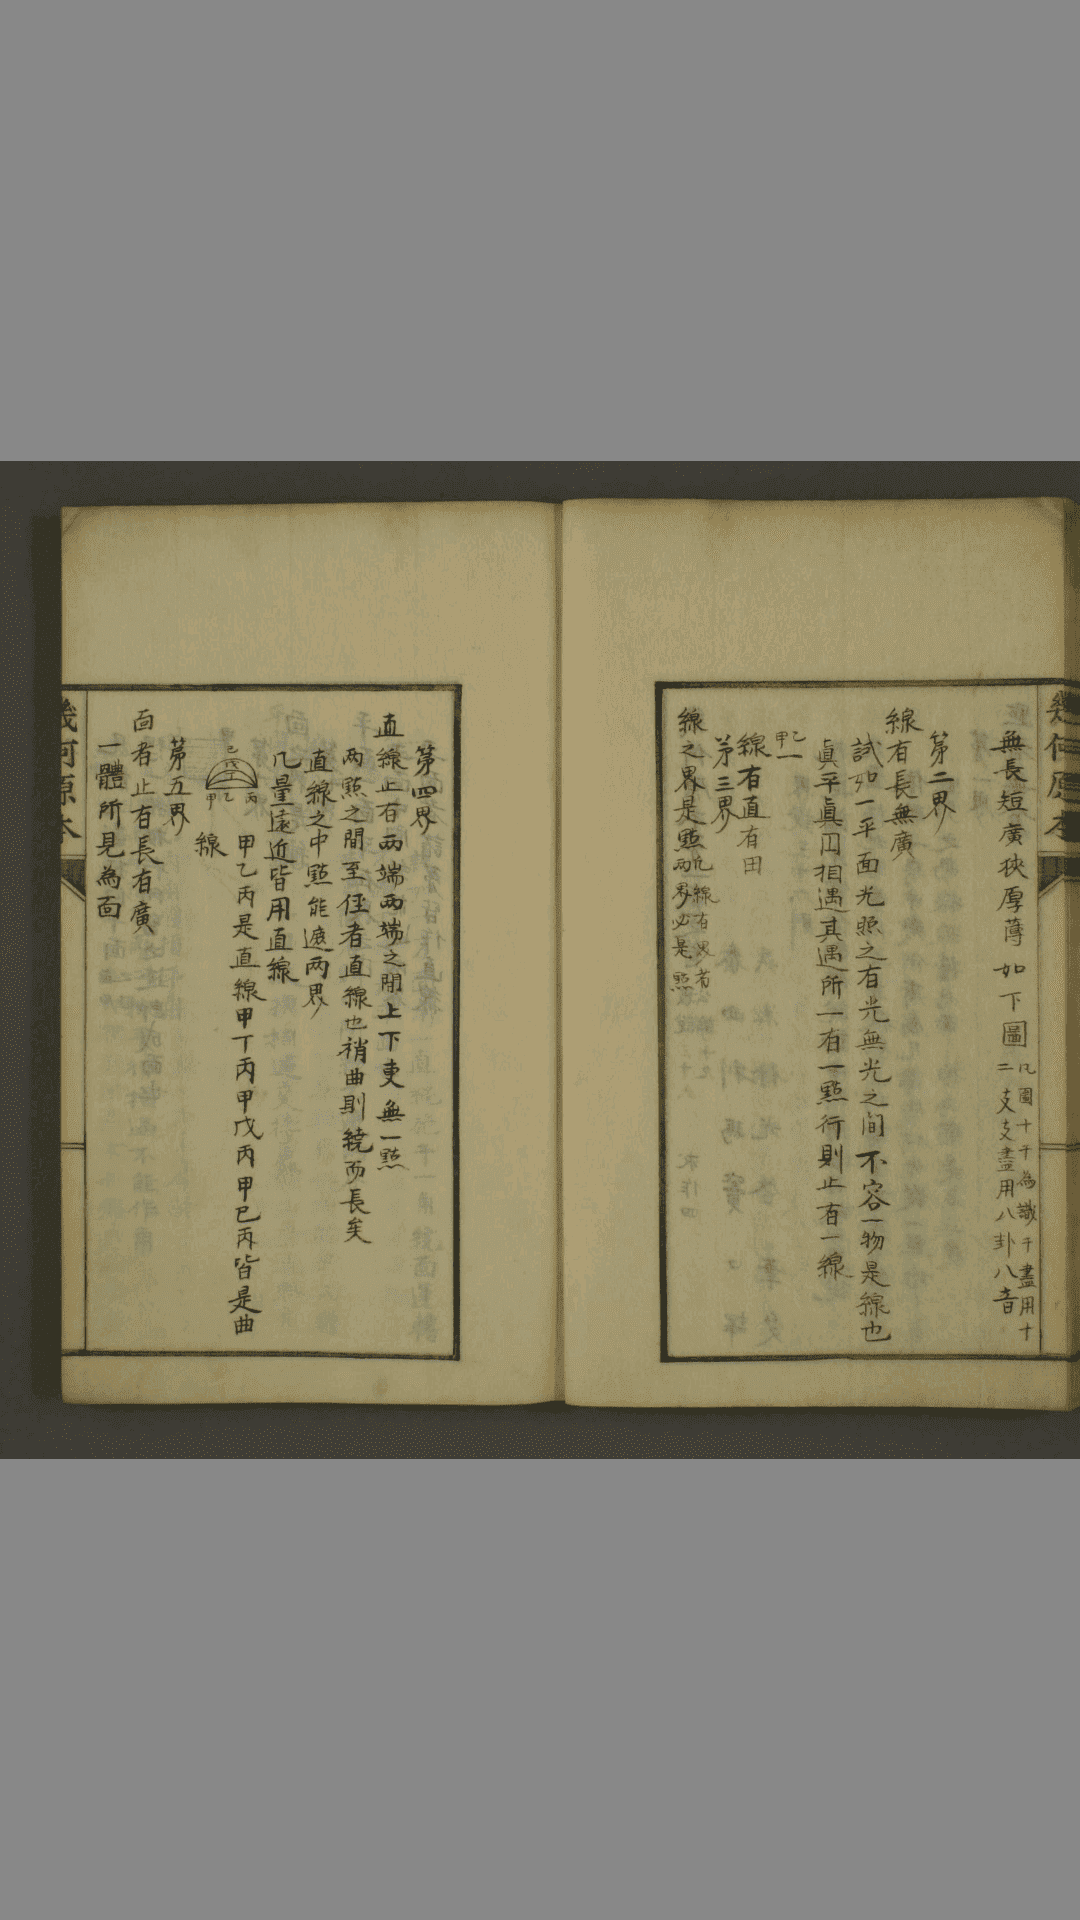 幾何原本
無長短廣狹厚薄 如下圖
凡圖十干為識干盡用十
二支支盡用八卦八音
第二界
線有長無廣
試如一平面光照之有光無光之间不容一物是線也
眞平眞円相遇其遇所一有一㸃行則止有一線
甲
乙
線有直有田
第三界
線之界是㸃
凡線有界者
兩界必是㸃
第四界
直線止有兩端兩端之閒上下更無一㸃
兩㸃之間至徑者直線也稍曲則繞而長矣
直線之中㸃能遮兩界
凡量遠近皆用直線
己
戊
丁
甲乙丙
甲乙丙是直線甲丁丙甲戊丙甲已丙皆是曲
線
第五界
面者止有長有廣
一體所見為面
幾何原本